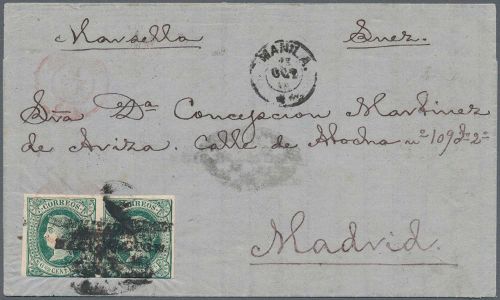 Marsella Suez.
MANILA.
OCT
Sra Da Concepcion Martinez
de Ariza. Calle de Atocha nº 109 2º
Madrid.
CORREOS CORREOS